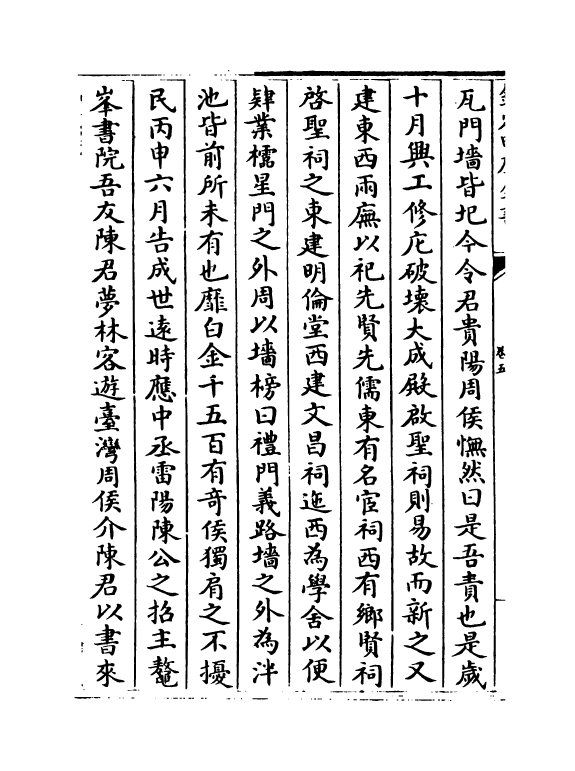 瓦門墻皆圯今令君貴陽周侯憮然曰是吾責也是歲
十月興工修庀破壞大成殿啟聖祠則易故而新之又
建東西兩廡以祀先賢先儒東有名宦祠西有鄉賢祠
啓聖祠之東建明倫堂西建文昌祠迤西為學舍以便
肄業櫺星門之外周以墻榜曰禮門義路墻之外為泮
池皆前所未有也靡白金千五百有奇侯獨肩之不擾
民丙申六月告成世遠時應中丞雷陽陳公之招主鼇
峯書院吾友陳君夢林客遊臺灣周侯介陳君以書來
卷五